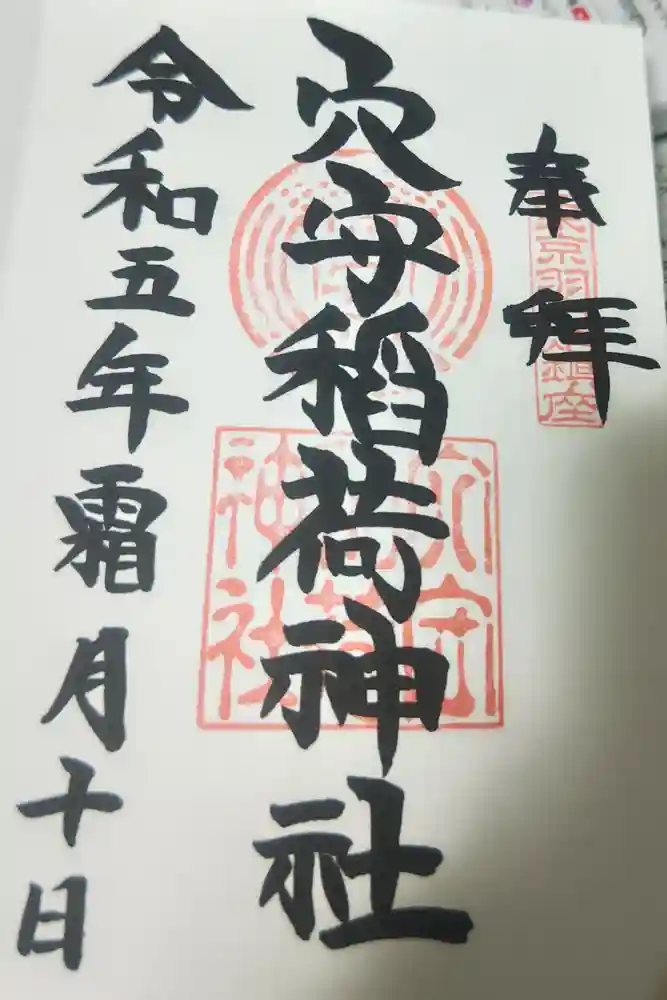 奉拝
東京羽田鎮座
穴守稲荷神社
穴守
稲荷
神社
令和五年霜月十日